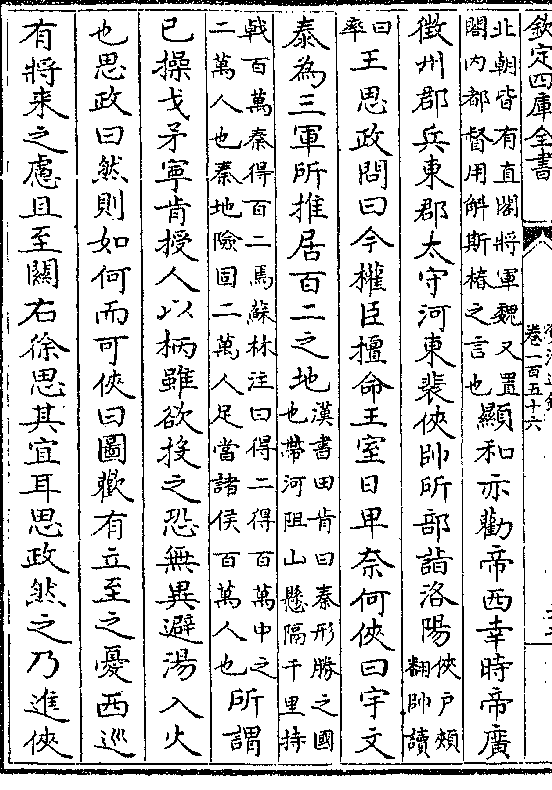 欽定四庫全書
卷一百五十六
北朝皆有直閤將軍魏又置
閤内都督用斛斯椿之言也
顯和亦勸帝西幸時帝廣
徵州郡兵東郡太守河東裴俠帥所部詣洛陽
俠户頰
翻帥讀
曰
率
王思政問曰今權臣擅命王室日卑奈何俠曰宇文
泰為三軍所推居百二之地
漢書田肯曰秦形勝之國
也帶河阻山懸隔千里持
戟百萬秦得百二焉蘇林注曰得二得百萬中之
二萬人也秦地險固二萬人足當諸侯百萬人也
所謂
已操戈矛寧肯授人以柄雖欲投之恐無異避湯入火
也思政曰然則如何而可俠曰圖歡有立至之憂西巡
有將來之慮且至關右徐思其宜耳思政然之乃進俠